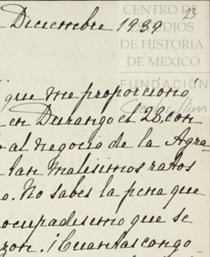 - Diciembre 1939
23
CENTRO DE
ESTUDIOS
DE HISTORIA
DE MEXICO
FUNDACIÓN
que me proporcionó
en Durango el 28, con
al negocio de la Agra
tan malisimos ratos
o. No sabes la pena que
ocupadisimo que se
zon. ¡Cuantas congo-